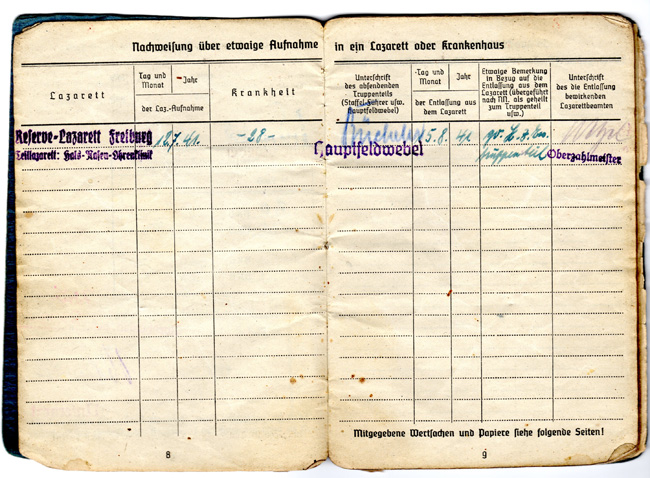 Nachweisung über etwaige Aufnahme in ein Lazarett oder Krankenhaus
Lazarett
Tag und Monat
Jahr
der Laz.-Aufnahme
Krankheit
Unterschrift
des absendenden
Truppenteils
(Staffel-Führer usw.
Hauptfeldwebel)
Tag und Monat
Jahr
der Entlassung aus
dem Lazarett
Etwaige Bemerkung
in Bezug auf die
Entlassung aus dem
Lazarett (übergeführt
nach NN. als geheilt
zum Truppenteil
usw.)
Unterschrift
des die Entlassung
bewirkenden
Lazarettbeamten
Reserve-Lazarett Freiburg
Teillazarett: Hals-Nasen-Ohrenklinik
12.7. 41.
-28-
Hauptfeldwebel
5.8. 41
Truppenteil
Oberzahlmeister
Mitgegebene Wertsachen und Papiere siehe folgende Seiten!
8
9